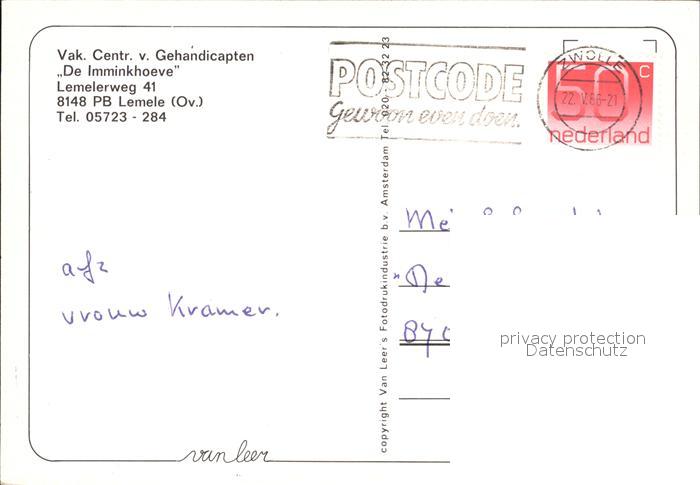 Vak. Centr. v. Gehandicapten
„De Imminkhoeve”
Lemelerweg 41
8148 PB Lemele (Ov.)
Tel. 05723 - 284
POSTCODE
Gewoon even doen.
ZWOLLE
22. V.86-21
60 C
nederland
afz
vrouw Kramer.
copyright Van Leer's Fotodrukindustrie b.v. Amsterdam Tel. 020 - 82 32 23
"De
privacy protection
Datenschutz
van leer